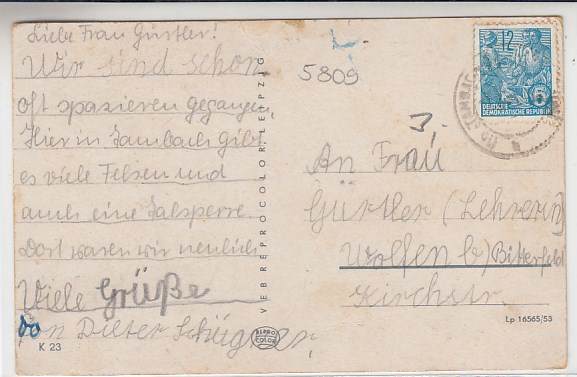 Liebe Frau Gürtler!
Wir sind schon
oft spazieren gegangen,
Hier in Sambach gibt
es viele Felsen und
auch eine Talsperre.
Dort waren wir neulich
Viele Grüße
von Dieter
K 23
VEB REPROCOLOR LEIPZIG
REPRO
COLOR
5809
12
5
DEUTSCHE
DEMOKRATISCHE REPUBLIK
An Frau
Gürtler (Lehrerin)
Wolfen b) Bitterfeld
Kirchstr.
Lp 16565/53